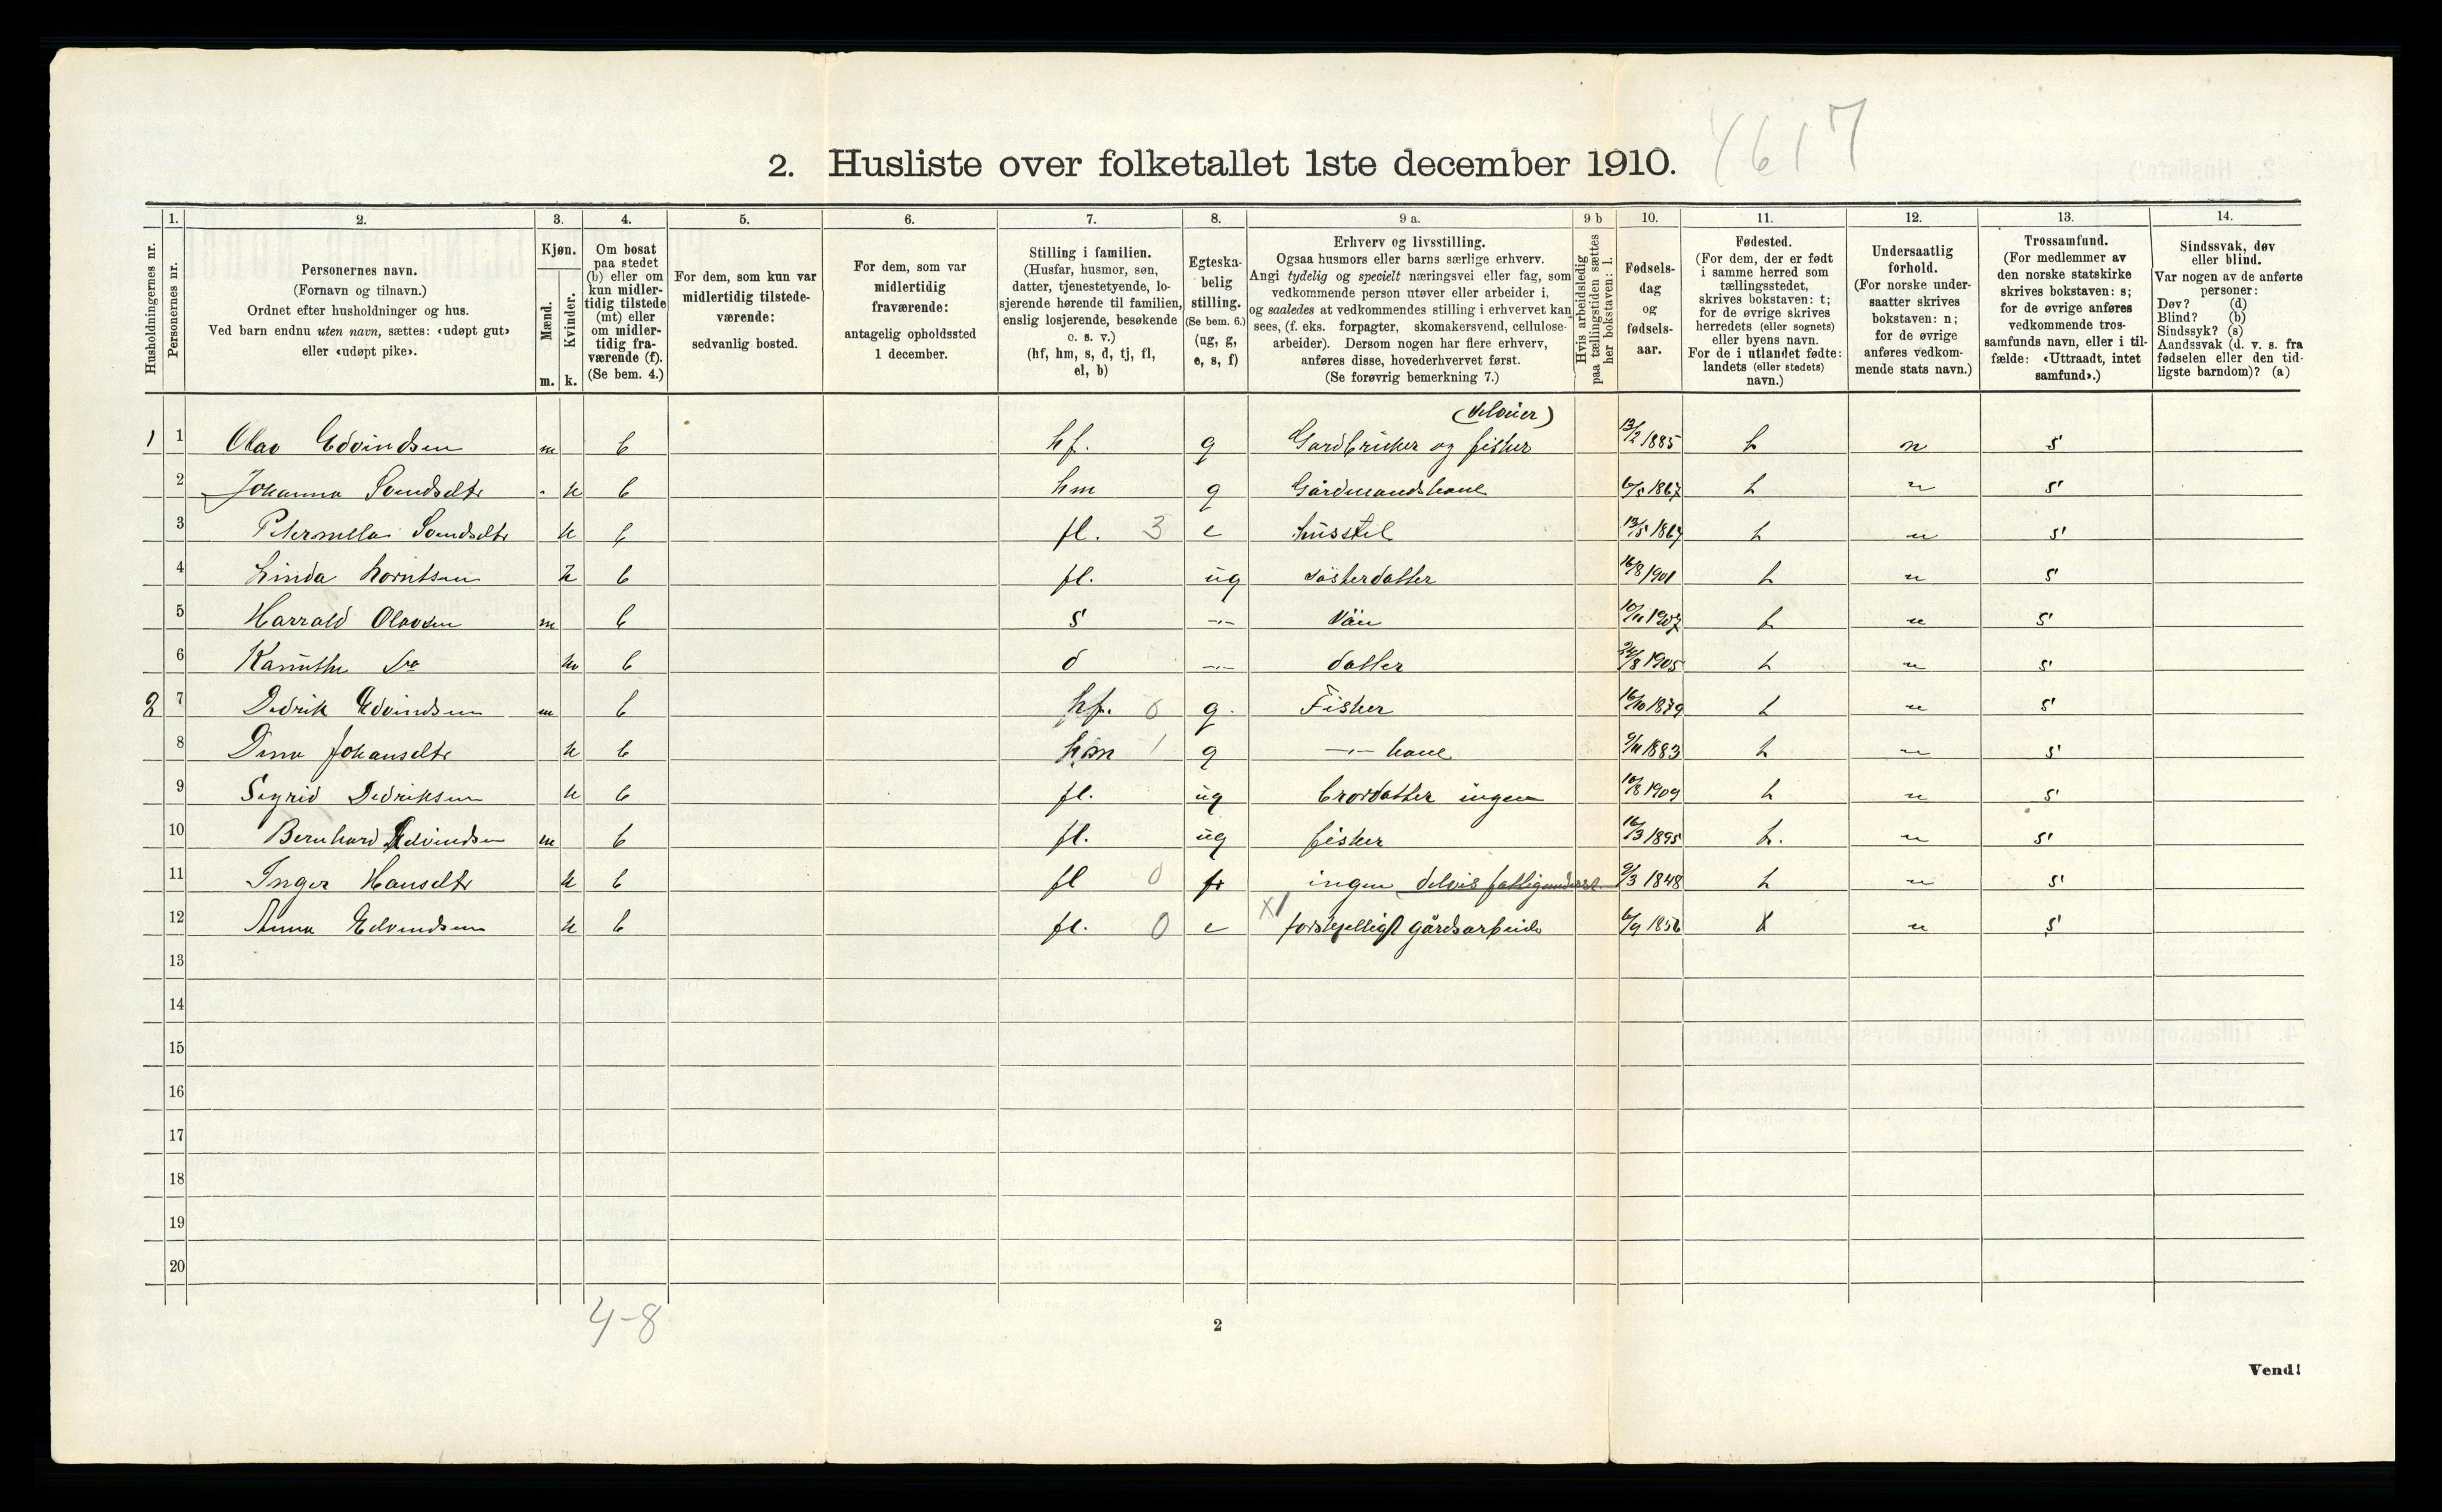 4617
2. Husliste over folketallet 1ste december 1910.
Husholdningernes nr.
1.
Personernes nr.
2.
Personernes navn.
(Fornavn og tilnavn.)
Ordnet efter husholdninger og hus.
Ved barn endnu uten navn, sættes: «udøpt gut»
eller «udøpt pike».
3.
Kjøn.
Mænd.
Kvinder.
m. k.
4.
Om bosat
paa stedet
(b) eller om
kun midler-
tidig tilstede
(mt) eller
om midler-
tidig fra-
værende (f).
(Se bem. 4.)
5.
For dem, som kun var
midlertidig tilstede-
værende:
sedvanlig bosted.
6.
For dem, som var
midlertidig
fraværende:
antagelig opholdssted
1 december.
7.
Stilling i familien.
(Husfar, husmor, søn,
datter, tjenestetyende, lo-
sjerende hørende til familien,
enslig losjerende, besøkende
o. s. v.)
(hf, hm, s, d, tj, fl,
el, b)
8.
Egteska-
belig
stilling.
(Se bem. 6.)
(ug, g,
e, s, f)
9 a.
Erhverv og livsstilling.
Ogsaa husmors eller barns særlige erhverv.
Angi tydelig og specielt næringsvei eller fag, som
vedkommende person utøver eller arbeider i,
og saaledes at vedkommendes stilling i erhvervet kan
sees, (f. eks. forpagter, skomakersvend, cellulose-
arbeider). Dersom nogen har flere erhverv,
anføres disse, hovederhvervet først.
(Se forøvrig bemerkning 7.)
9 b
Hvis arbeidsledig
paa tællingstiden sættes
her bokstaven: l.
10.
Fødsels-
dag
og
fødsels-
aar.
11.
Fødested.
(For dem, der er født
i samme herred som
tællingsstedet,
skrives bokstaven: t;
for de øvrige skrives
herredets (eller sognets)
eller byens navn.
For de i utlandet fødte:
landets (eller stedets)
navn.)
12.
Undersaatlig
forhold.
(For norske under-
saatter skrives
bokstaven: n;
for de øvrige
anføres vedkom-
mende stats navn.)
13.
Trossamfund.
(For medlemmer av
den norske statskirke
skrives bokstaven: s;
for de øvrige anføres
vedkommende tros-
samfunds navn, eller i til-
fælde: «Uttraadt, intet
samfund».)
14.
Sindssvak, døv
eller blind.
Var nogen av de anførte
personer:
Døv? (d)
Blind? (b)
Sindssyk? (s)
Aandssvak (d. v. s. fra
fødselen eller den tid-
ligste barndom)? (a)
(selveier)
1 1 Olav Edvindsen m b hf. g Gardbruker og fisker 13/2 1885 t n s
2 Johanna k b hm g Gårdmandskone 1867 t n s
3 k b fl. 3 e husstel 13/5 1867 t n s
4 Linda k b fl. ug søsterdatter 16/8 1901 t n s
5 Harrald Olavsen m b s —"— søn 10/11 1907 t n s
6 b d —"— datter 24/8 1905 t n s
2 7 Dedrik Edvindsen m b hf. 0 g. Fisker 16/10 1879 t n s
8 Dina k b hm 1 g —"— kone 1883 t n s
9 Sigrid Dedriksen k b fl. ug brordatter ingen 10/8 1909 t n s
10 Bernhard Edvindsen m b fl. ug fisker 16/3 1895 t. n s
11 Inger k b fl 0 ingen delvis fattigunderst 9/3 1848 t n s
12 Anna Edvindsen k b fl. 0 e forskjelligt gårdsarbeide 6/9 1856 n s
13
14
15
16
17
18
19
20
4-8
2
Vend!